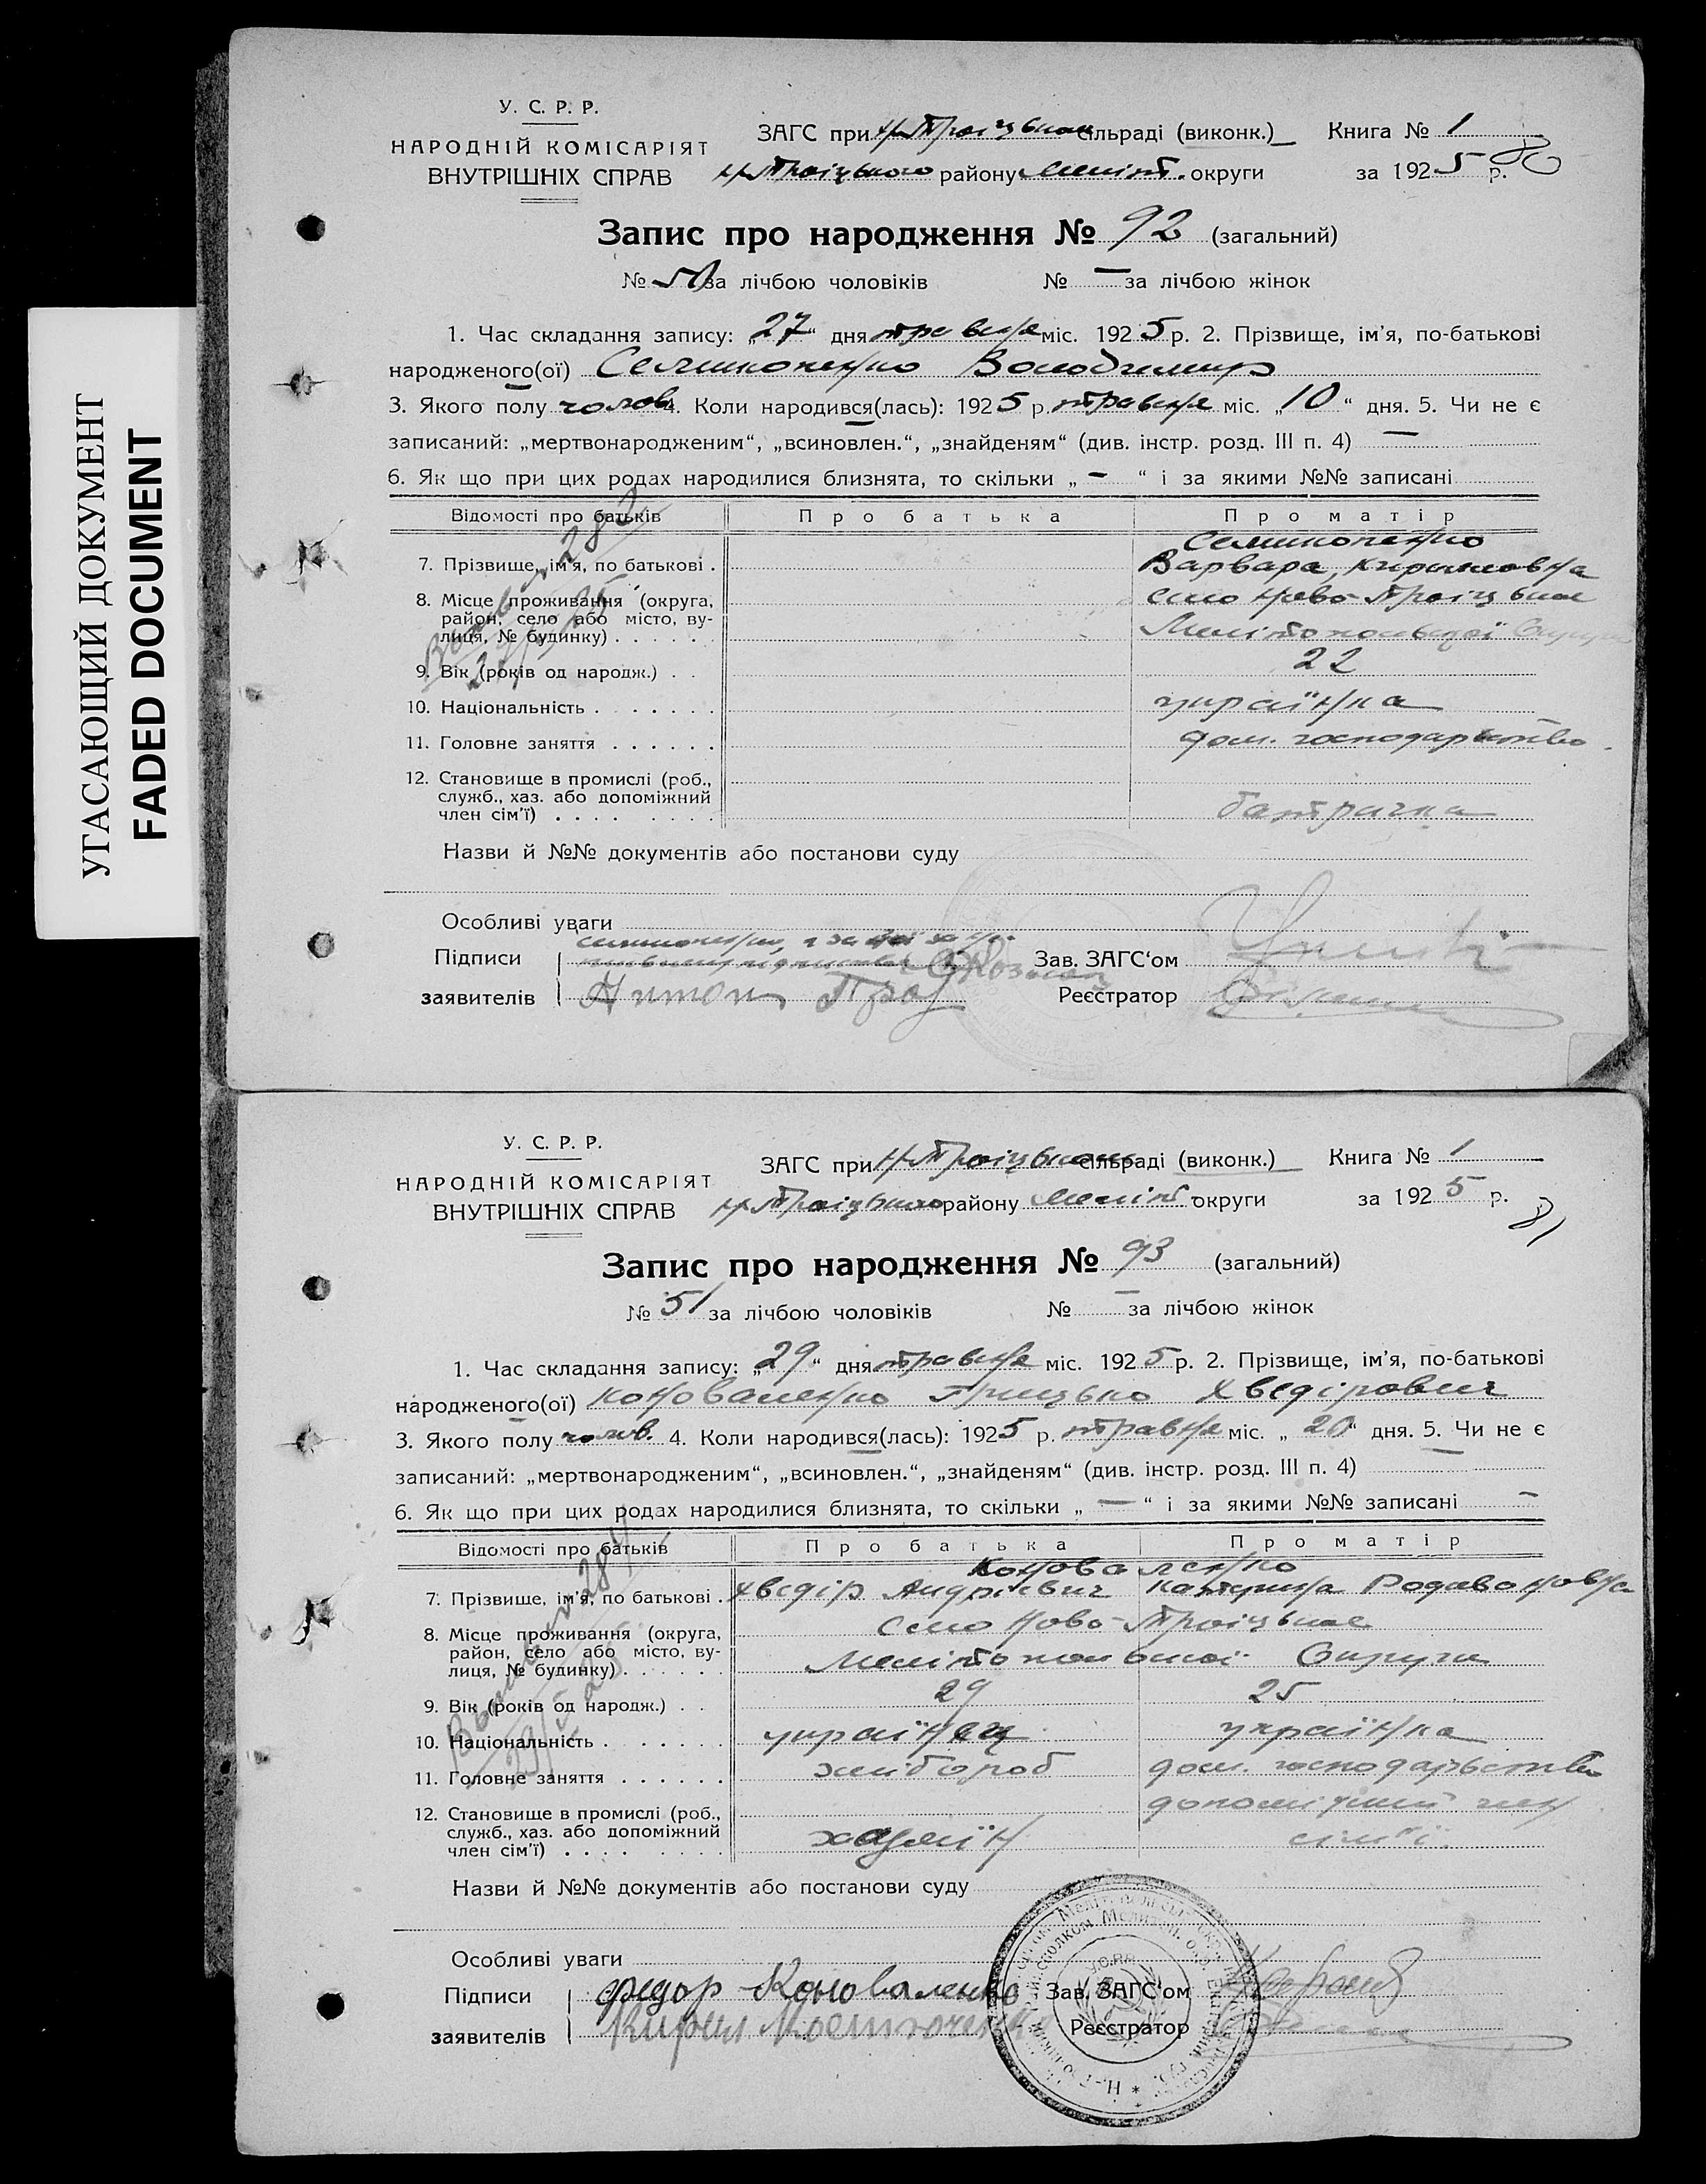 УГАСАЮЩИЙ ДОКУМЕНТ
FADED DOCUMENT
У. С. Р. Р.
НАРОДНІЙ КОМІСАРІЯТ
ВНУТРІШНІХ СПРАВ
ЗАГС при Н-Троіцькому сільраді (виконк.)
Н-Троіцького району Меліт. округи
Книга № 1
за 1925 р.
80
Запис про народження № 92 (загальний)
№ 50 за лічбою чоловіків № — за лічбою жінок
1. Час складання запису: „27“ дня травня міс. 1925 р. 2. Прізвище, ім’я, по-батькові
народженого(ої) Володимир
3. Якого полу чолов. 4. Коли народився(лась): 1925 р. травня міс. „10“ дня. 5. Чи не є
записаний: „мертвонародженим“, „всиновлен.“, „знайденям“ (див. інстр. розд. III п. 4) —
6. Як що при цих родах народилися близнята, то скільки „ — “ і за якими №№ записані
Відомості про батьків Про батька Про матір
7. Прізвище, ім’я, по батькові . Варвара Кириловна
8. Місце проживання (округа, село Ново-Троіцьке
район, село або місто, ву-
лиця, № будинку) . . . . . Мелітопольської Округи
9. Вік (років од народж.) . . 22
10. Національність . . . . . . українка
11. Головне заняття . . . . . . дом. господарьство
12. Становище в промислі (роб.,
служб., хаз. або допоміжний
член сім’ї) . . . . . . . . батрачка
Назви й №№ документів або постанови суду
Особливі уваги
Підписи
заявителів Антон
Зав. ЗАГС‘ом
Реєстратор
У. С. Р. Р.
НАРОДНІЙ КОМІСАРІЯТ
ВНУТРІШНІХ СПРАВ
ЗАГС при Н-Троіцькому сільраді (виконк.)
Н-Троіцького району Меліт. округи
Книга № 1
за 1925 р.
81
Запис про народження № 93 (загальний)
№ 51 за лічбою чоловіків № — за лічбою жінок
1. Час складання запису: „29“ дня травня міс. 1925 р. 2. Прізвище, ім’я, по-батькові
народженого(ої) Коноваленко Грицько Хведірович
3. Якого полу чолов. 4. Коли народився(лась): 1925 р. травня міс. „20“ дня. 5. Чи не є
записаний: „мертвонародженим“, „всиновлен.“, „знайденям“ (див. інстр. розд. III п. 4) —
6. Як що при цих родах народилися близнята, то скільки „ — “ і за якими №№ записані —
Відомості про батьків Про батька Про матір
Коноваленко
7. Прізвище, ім’я, по батькові . Хведір Андрієвич Катерина
8. Місце проживання (округа, село Ново-Троіцьке
район, село або місто, ву-
лиця, № будинку) . . . . . Мелітопольскої Округи
9. Вік (років од народж.) . . 29 25
10. Національність . . . . . . українец українка
11. Головне заняття . . . . . . хлібороб дом. господарьство
12. Становище в промислі (роб., допоміжний член
служб., хаз. або допоміжний
член сім’ї) . . . . . . . . хазяїн сім’ї.
Назви й №№ документів або постанови суду
Особливі уваги
Підписи Федор Коноваленко
заявителів Кирил
Зав. ЗАГС‘ом
Реєстратор
У.С.Р.Р.